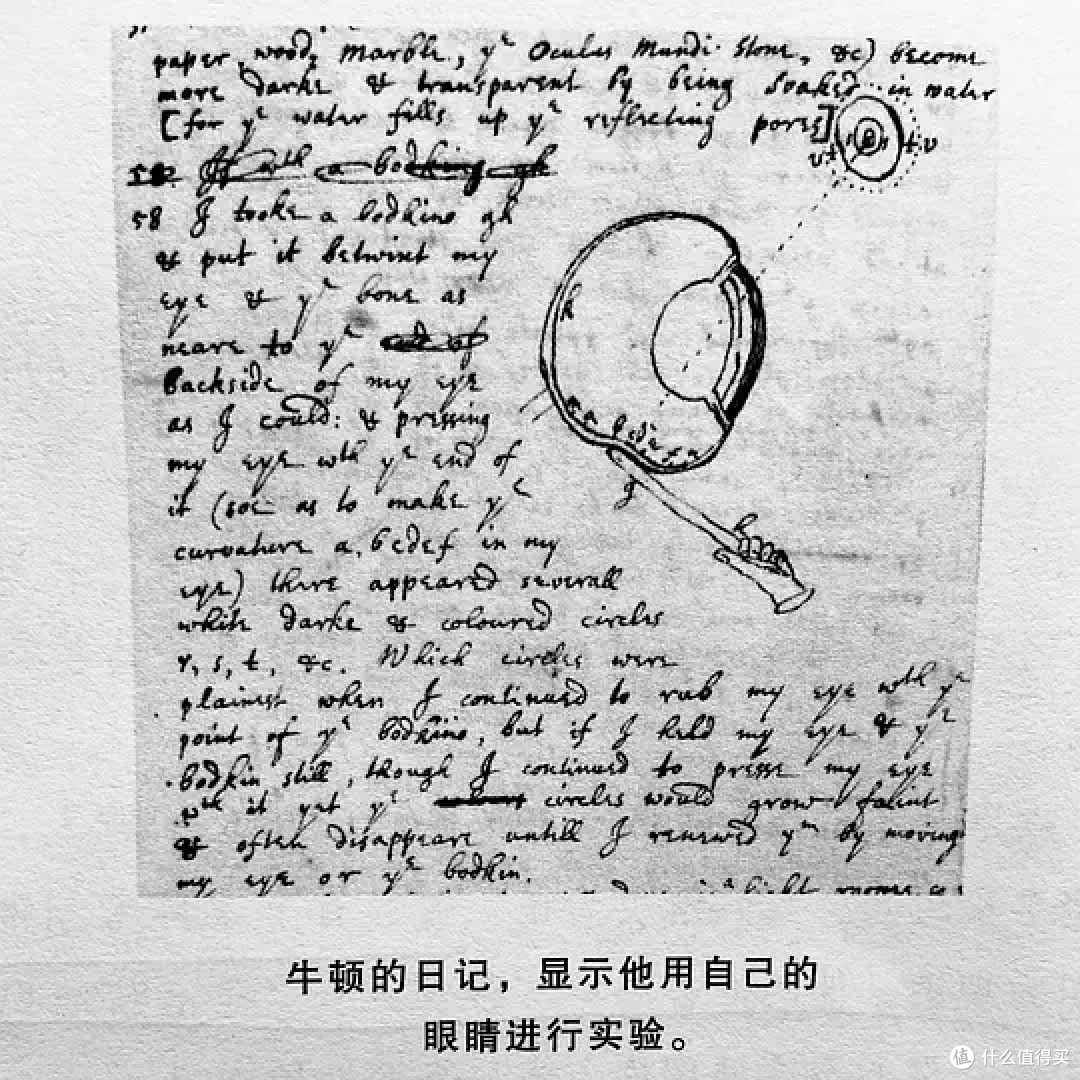 paper, wood, marble, yᵉ Oculus Mundi Stone, &c) become
more darke & transparent by being soaked in water
[for yᵉ water fills up yᵉ reflecting pores]
58 I tooke a bodkine gh
& put it betwixt my
eye & yᵉ bone as
neare to yᵉ
backside of my eye
as I could: & pressing
my eye wᵗʰ yᵉ end of
it (soe as to make yᵉ
curvature a, bcdef in my
eye) there appeared severall
white darke & coloured circles
r, s, t, &c. Which circles were
plainest when I continued to rub my eye wᵗʰ yᵉ
point of yᵉ bodkine, but if I held my eye & yᵉ
bodkin still, though I continued to presse my eye
wᵗʰ it yet yᵉ circles would grow faint
& often disappeare untill I renewed yᵐ by moving
my eye or yᵉ bodkin.
g
h
牛顿的日记，显示他用自己的
眼睛进行实验。
值 什么值得买